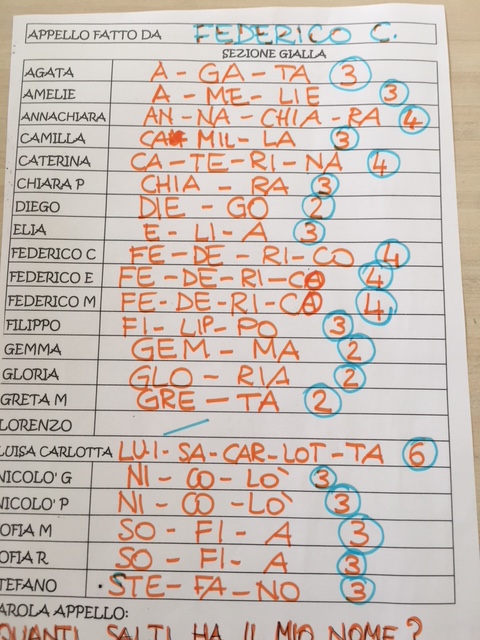 APPELLO FATTO DA FEDERICO C.
SEZIONE GIALLA
AGATA A - GA - TA 3
AMELIE A - ME - LIE 3
ANNACHIARA AN - NA - CHIA - RA 4
CAMILLA CA - MIL - LA 3
CATERINA CA - TE - RI - NA 4
CHIARA P CHIA - RA 3
DIEGO DIE - GO 2
ELIA E - LI - A 3
FEDERICO C FE - DE - RI - CO 4
FEDERICO E FE - DE - RI - CO 4
FEDERICO M FE - DE - RI - CO 4
FILIPPO FI - LIP - PO 3
GEMMA GEM - MA 2
GLORIA GLO - RIA 2
GRETA M GRE - TA 2
LORENZO
LUISA CARLOTTA LU-I - SA - CAR - LOT - TA 6
NICOLO' G NI - CO - LO' 3
NICOLO' P NI - CO - LO' 3
OFIA M SO - FI - A 3
OFIA R SO - FI - A 3
TEFANO STE - FA - NO 3
AROLA APPELLO:
QUANTI SALTI HA IL MIO NOME?